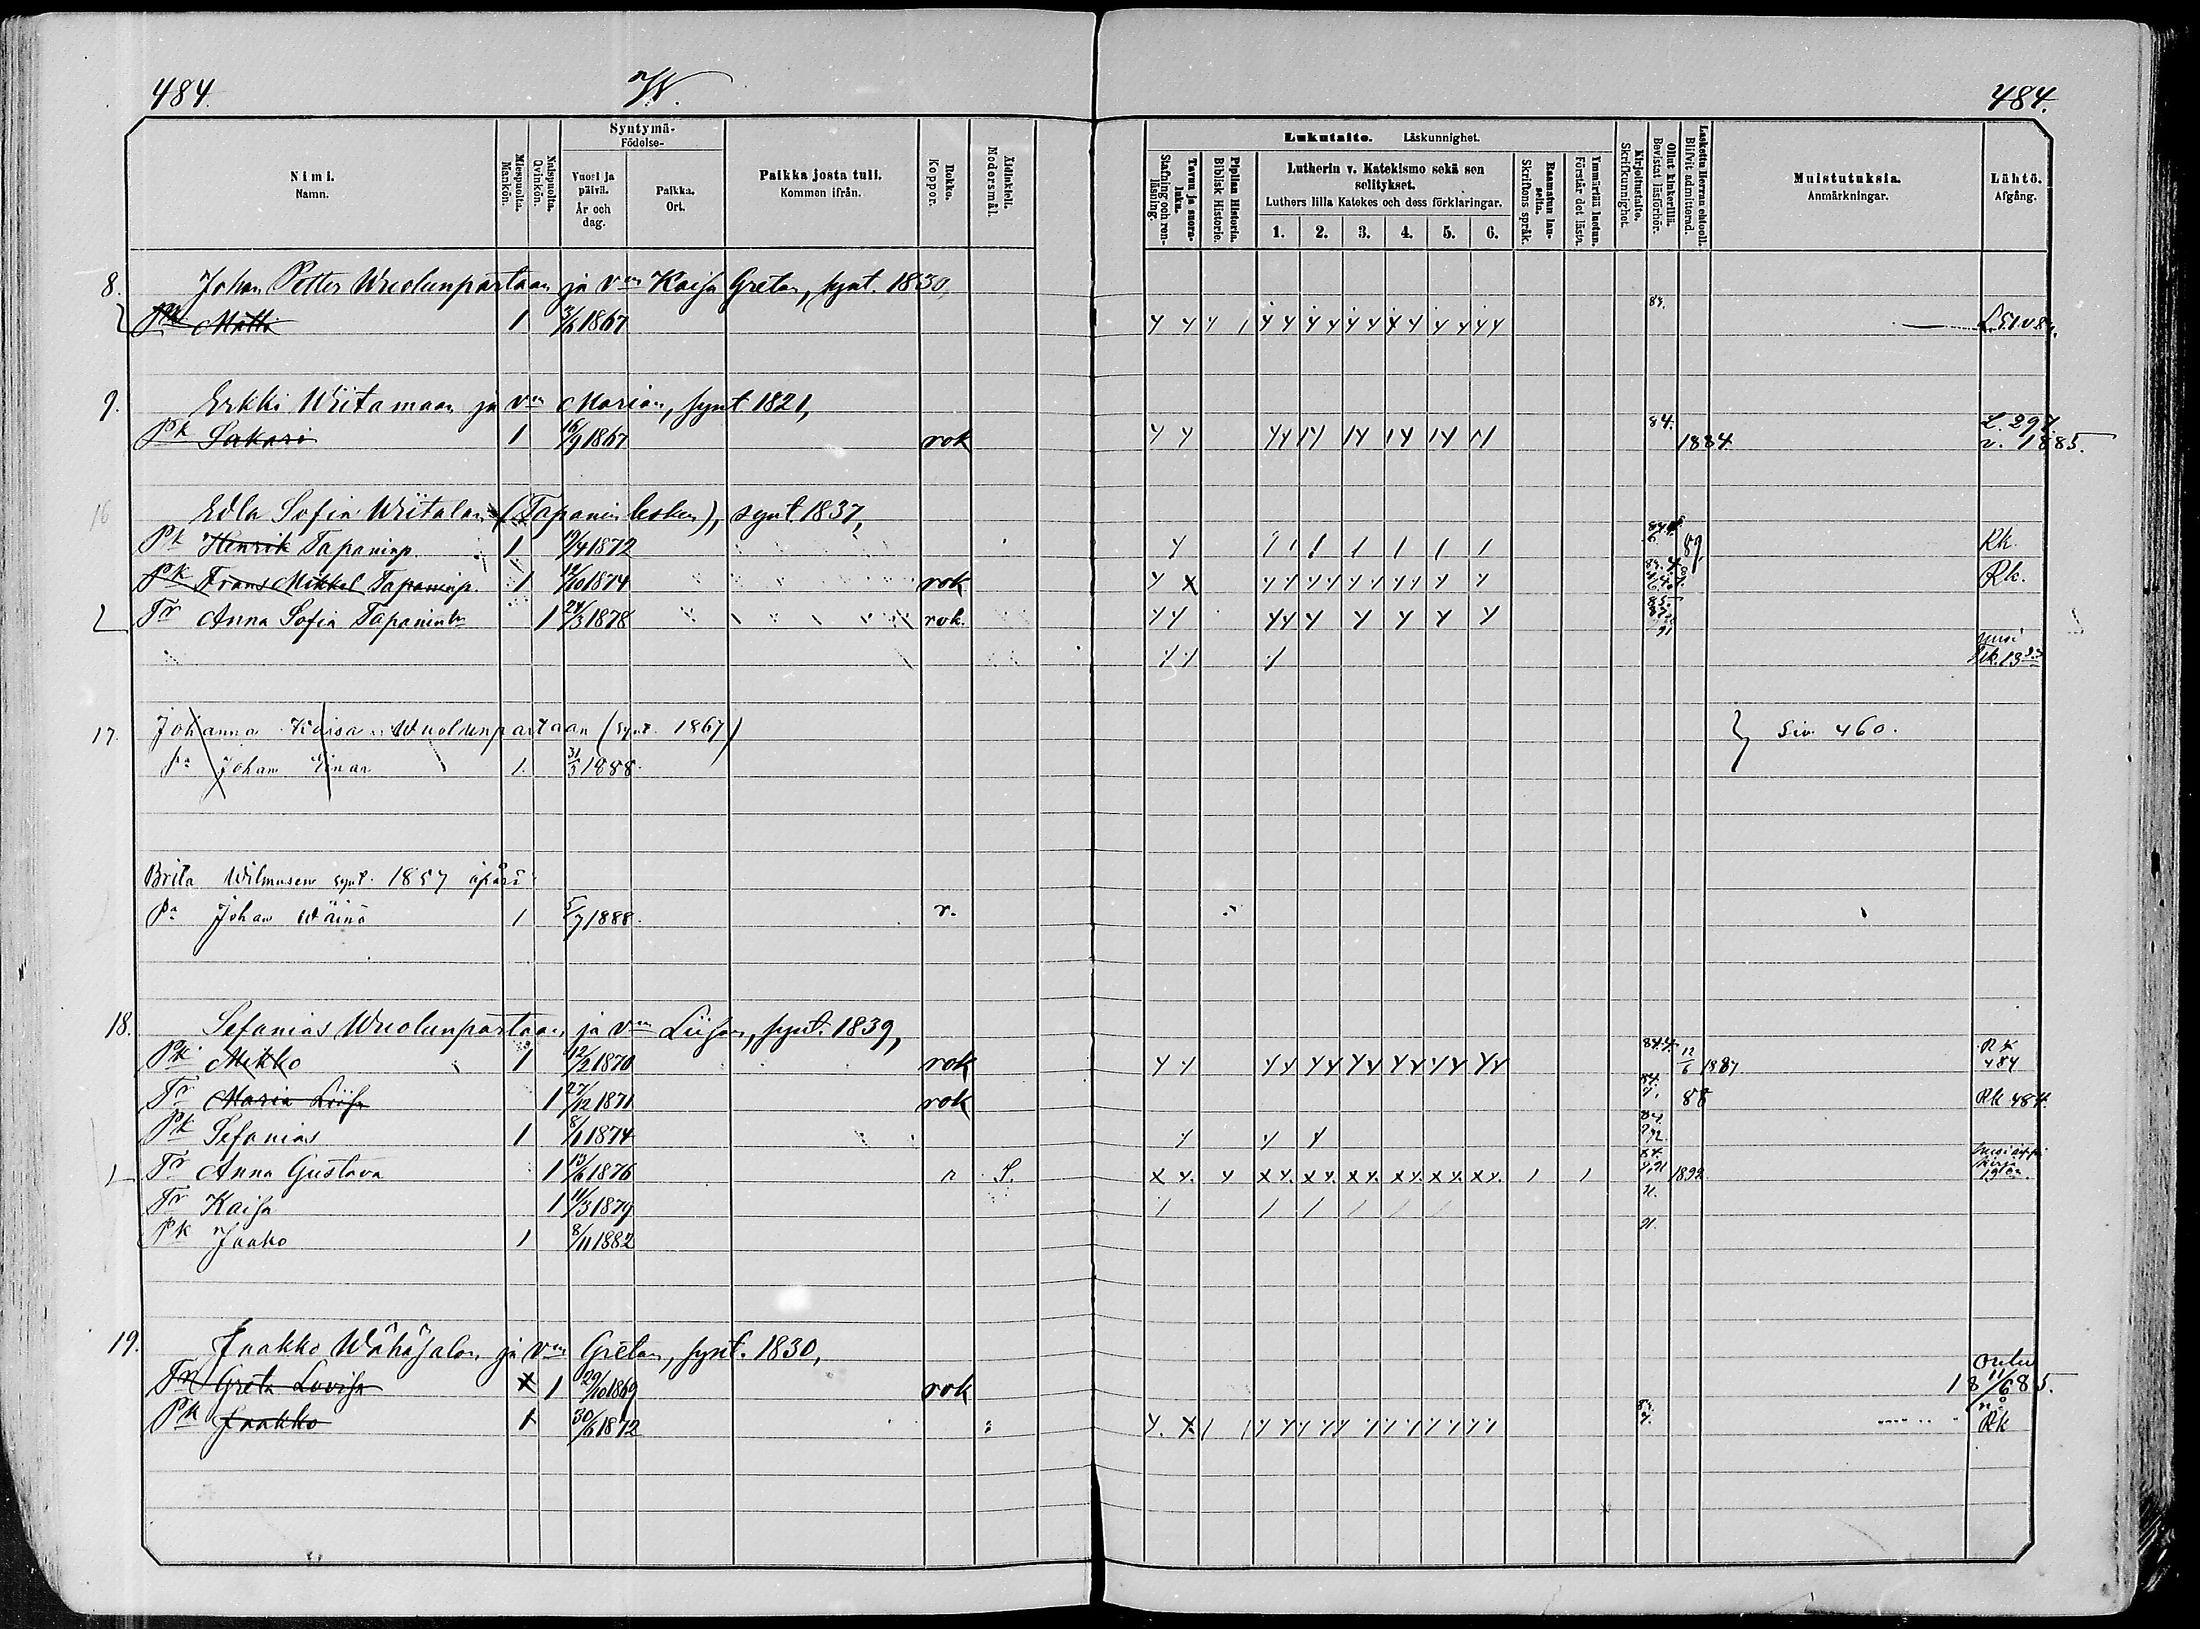 484. W. 484.
Nimi. Namn.
Miespuolta. Mankön.
Naispuolta. Qvinkön.
Syntymä- Födelse-
Vuosi ja päivä. År och dag.
Paikka. Ort.
Paikka josta tuli. Kommen ifrån.
Rokko. Koppor.
Äidinkieli. Modersmål.
Lukutaito. Läskunnighet.
Tavuu ja suora- luku. Stafning och ren- läsning.
Piplian Historia. Biblisk Historie.
Lutherin v. Katekismo sekä sen selitykset.
Luthers lilla Katekes och dess förklaringar.
1. 2. 3. 4. 5. 6.
Raamatun lau- seita. Skriftens språk.
Ymmärtää luetun. Förstår det lästa.
Kirjoitustaito. Skrifkunnighet.
Ollut kinkerillä. Bevistat läsförhör.
Laskettu Herran ehtooll. Blifvit admitterad.
Muistutuksia. Anmärkningar.
Lähtö. Afgång.
8. Johan Petter Wuolunpartaan ja vmn Kaisa Gretan, synt. 1830,
Pk Matti 1 3/6 1867 83.
9. Erkki Wiitamaan ja vmn Marian, synt 1821,
Pk Sakari 1 16/9 1867 rok 84. 1884. L. 297 v. 1885.
16 Edla Sofia Wiitalan (Tapanin lesken), synt. 1837,
Pk Henrik Tapaninp. 1 19/4 1872 89 Rk.
Pk Frans Mikkel Tapaninp. 1 12/10 1874 rok Rk.
Tr Anna Sofia Tapanintr 1 24/3 1878 rok. 91
uusi
17. Johanna Kaisa Wuolunpartaan (synt. 1867) Siv. 460.
Pa Johan Einar 1. 31/3 1888.
Brita Wilmusen synt. 1857 äpärä
Pa Johan Wäinö 1 5/7 1888. r.
18. Sefanias Wuolunpartaan ja vmn Liisan, synt. 1839,
Pk Mikko 1 12/2 1870 rok 12/6 1887 Rk 484
Tr Maria Liisa 1 27/12 1871 rok 84. 88 Rk 484.
Pk Sefanias 1 8/1 1874
Tr Anna Gustava 1 13/6 1876 r S. 1892
Tr Kaisa 1 11/3 1879 91.
Pk Jaako 1 8/11 1882 91.
19. Jaakko Wähäsalon ja vmn Gretan, synt. 1830,
Tr Greta Lovisa 1 29/10 1869 rok Oulu 11/6 1885.
Pk Jaakko 1 30/6 1872 Rk